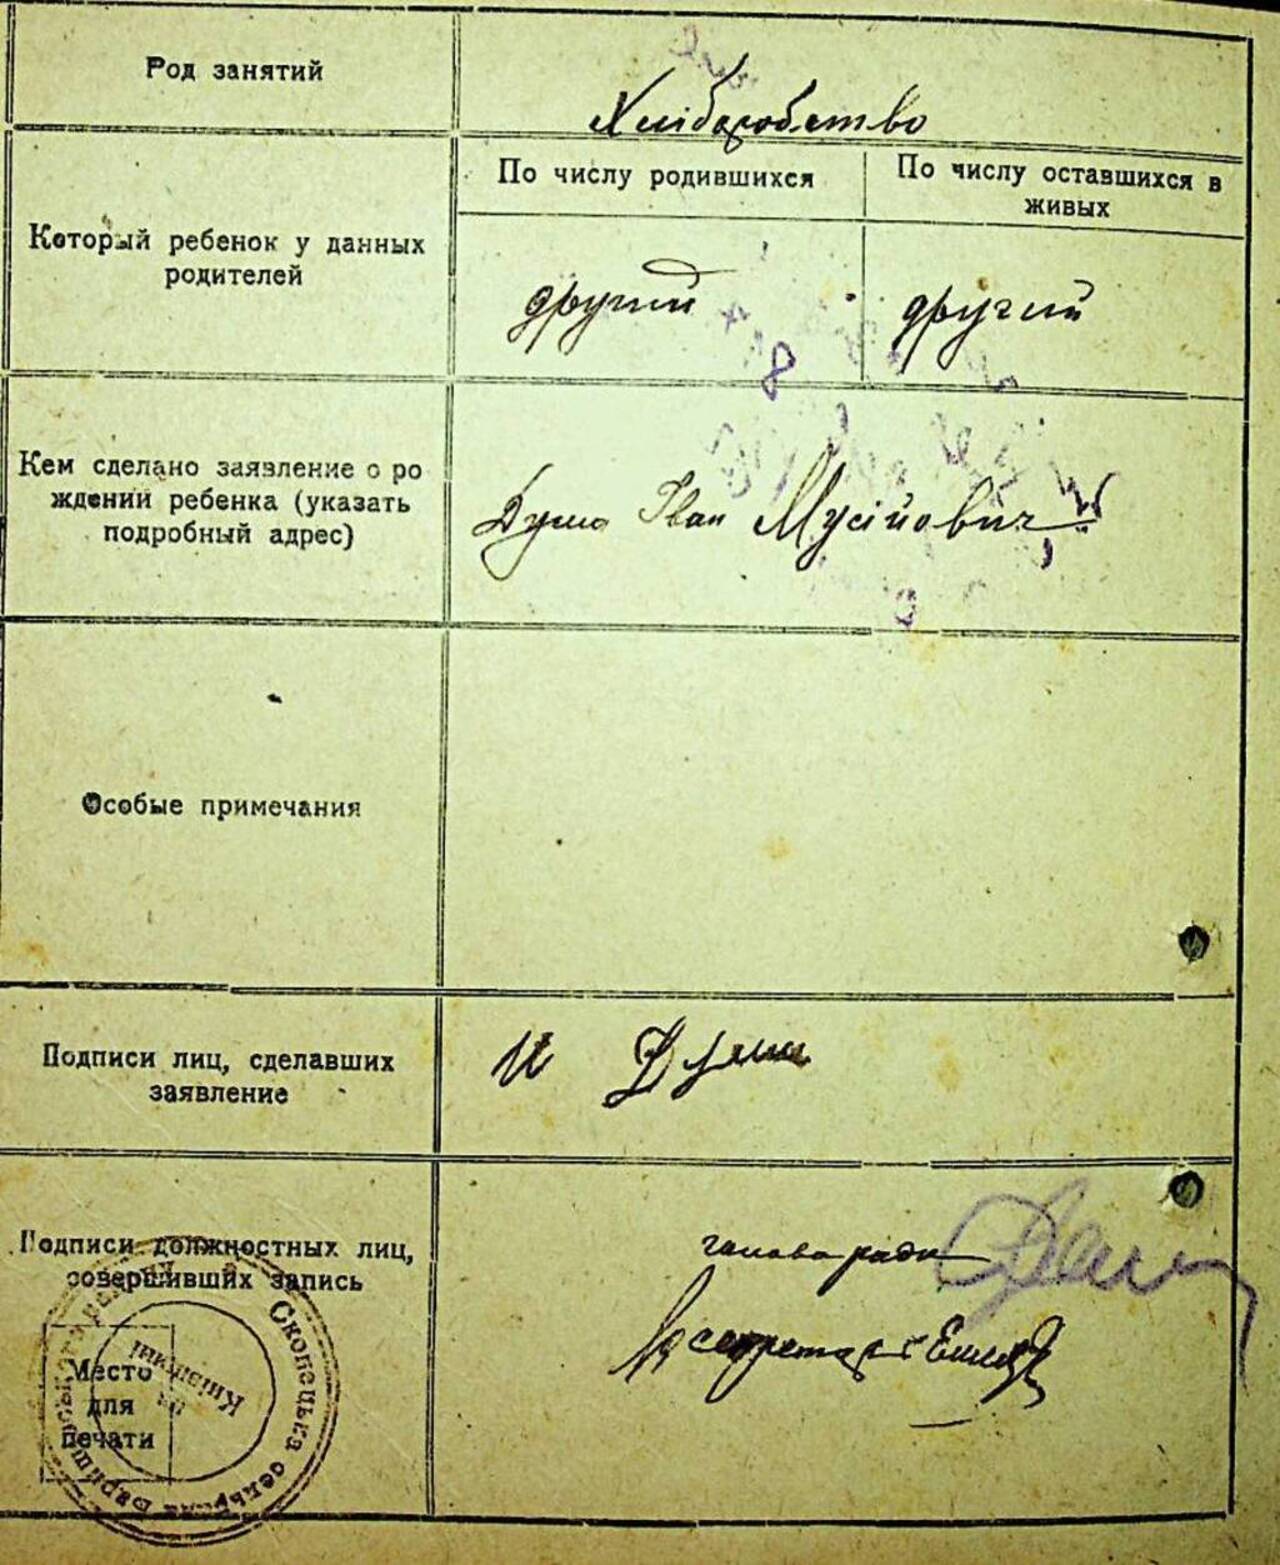 Род занятий
Хліборобство
Который ребенок у данных
родителей
По числу родившихся
По числу оставшихся в
живых
другий
другий
8
Кем сделано заявление о ро
ждении ребенка (указать
подробный адрес)
Іван Мусійович
Особые примечания
Подписи лиц, сделавших
заявление
И
Подписи должностных лиц,
совершивших запись
голова ради
секретар
Место
для
печати
Скопецька
Київщині